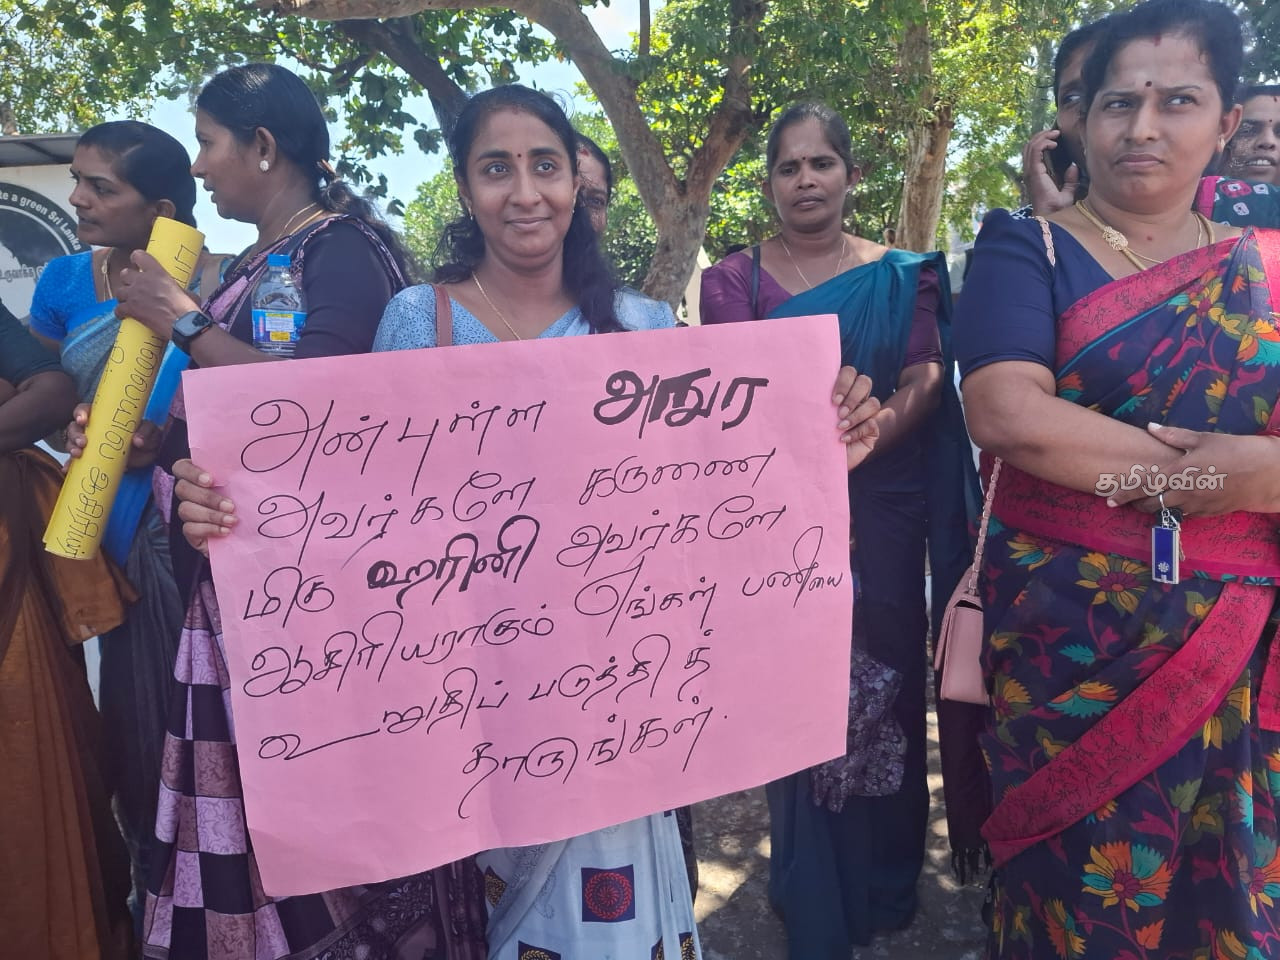 te a green Sri Lanka
அன்புள்ள அநுர
அவர்களே கருணை
மிகு ஹரினி அவர்களே
ஆசிரியராகும் எங்கள் பணியை
உறுதிப் படுத்தித்
தாருங்கள்.
தமிழ்வின்